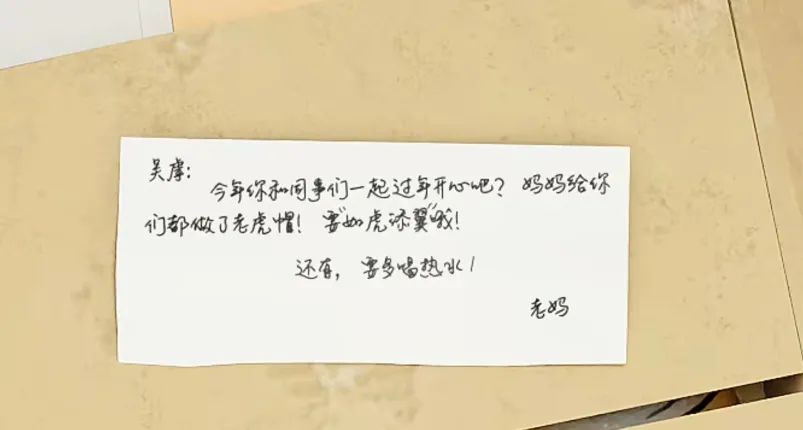 吴:
今年你和同事们一起过年开心吧?妈妈给你
们都做了老虎帽!要"如虎添翼"哦!
还有,要多喝热水!
老妈